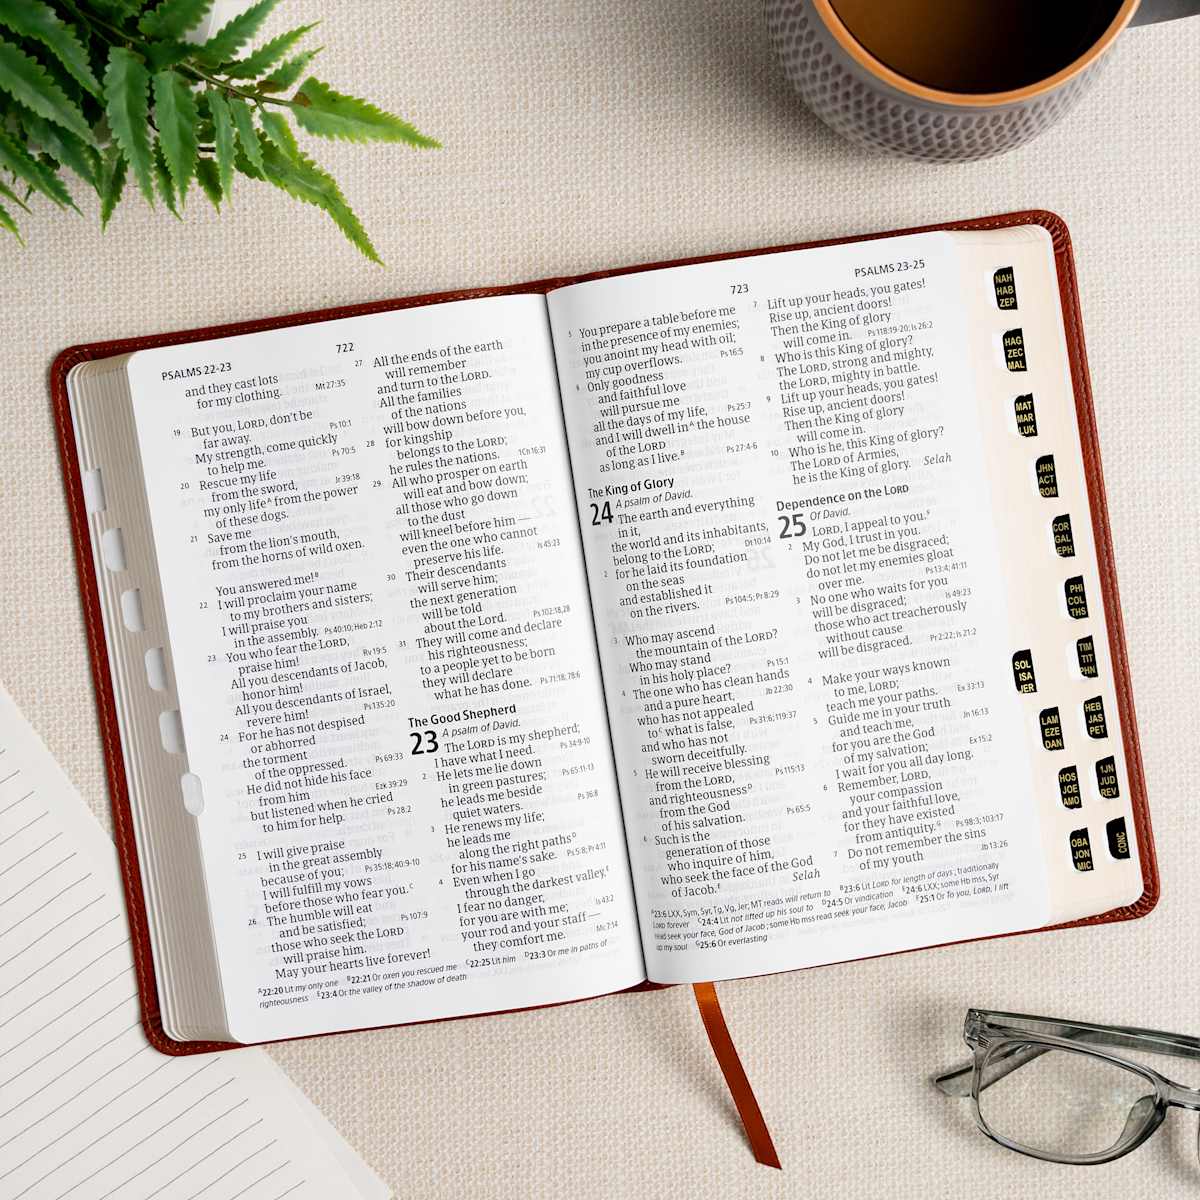 PSALMS 22-23
722
and they cast lots
for my clothing. Mt 27:35
19 But you, LORD, don't be
far away. Ps 10:1
My strength, come quickly
to help me. Ps 70:5
20 Rescue my life
from the sword, Jr 39:18
my only life^A from the power
of these dogs.
21 Save me
from the lion's mouth,
from the horns of wild oxen.
You answered me!^B
22 I will proclaim your name
to my brothers and sisters;
I will praise you
in the assembly. Ps 40:10; Heb 2:12
23 You who fear the LORD,
praise him! Rv 19:5
All you descendants of Jacob,
honor him!
All you descendants of Israel,
revere him! Ps 135:20
24 For he has not despised
or abhorred
the torment
of the oppressed. Ps 69:33
He did not hide his face
from him Ezk 39:29
but listened when he cried
to him for help. Ps 28:2
25 I will give praise
in the great assembly
because of you; Ps 35:18; 40:9-10
I will fulfill my vows
before those who fear you.^C
26 The humble will eat
and be satisfied; Ps 107:9
those who seek the LORD
will praise him.
May your hearts live forever!
27 All the ends of the earth
will remember
and turn to the LORD.
All the families
of the nations
will bow down before you,
28 for kingship
belongs to the LORD;
he rules the nations. 1Ch 16:31
29 All who prosper on earth
will eat and bow down;
all those who go down
to the dust
will kneel before him —
even the one who cannot
preserve his life. Is 45:23
30 Their descendants
will serve him;
the next generation
will be told
about the Lord. Ps 102:18,28
31 They will come and declare
his righteousness;
to a people yet to be born
they will declare
what he has done. Ps 71:18; 78:6
The Good Shepherd
23 A psalm of David.
The LORD is my shepherd;
I have what I need. Ps 34:9-10
2 He lets me lie down
in green pastures; Ps 65:11-13
he leads me beside
quiet waters. Ps 36:8
3 He renews my life;
he leads me
along the right paths^D
for his name's sake. Ps 5:8; Pr 4:11
4 Even when I go
through the darkest valley,^E
I fear no danger,
for you are with me; Is 43:2
your rod and your staff —
they comfort me. Mc 7:14
^A 22:20 Lit my only one ^B 22:21 Or oxen you rescued me ^C 22:25 Lit him ^D 23:3 Or me in paths of
righteousness ^E 23:4 Or the valley of the shadow of death
723
PSALMS 23-25
5 You prepare a table before me
in the presence of my enemies;
you anoint my head with oil;
my cup overflows. Ps 16:5
6 Only goodness
and faithful love
will pursue me
all the days of my life, Ps 25:7
and I will dwell in^A the house
of the LORD
as long as I live.^B Ps 27:4-6
The King of Glory
24 A psalm of David.
The earth and everything
in it,
the world and its inhabitants,
belong to the LORD; Dt 10:14
2 for he laid its foundation
on the seas
and established it
on the rivers. Ps 104:5; Pr 8:29
3 Who may ascend
the mountain of the LORD?
Who may stand
in his holy place? Ps 15:1
4 The one who has clean hands
and a pure heart, Jb 22:30
who has not appealed
to^C what is false, Ps 31:6; 119:37
and who has not
sworn deceitfully.
5 He will receive blessing
from the LORD, Ps 115:13
and righteousness^D
from the God
of his salvation. Ps 65:5
6 Such is the
generation of those
who inquire of him,
who seek the face of the God
of Jacob.^E Selah
7 Lift up your heads, you gates!
Rise up, ancient doors!
Then the King of glory
will come in. Ps 118:19-20; Is 26:2
8 Who is this King of glory?
The LORD, strong and mighty,
the LORD, mighty in battle.
9 Lift up your heads, you gates!
Rise up, ancient doors!
Then the King of glory
will come in.
10 Who is he, this King of glory?
The LORD of Armies,
he is the King of glory. Selah
Dependence on the LORD
25 Of David.
LORD, I appeal to you.^F
2 My God, I trust in you.
Do not let me be disgraced;
do not let my enemies gloat
over me. Ps 13:4; 41:11
3 No one who waits for you
will be disgraced; Is 49:23
those who act treacherously
without cause
will be disgraced. Pr 2:22; Is 21:2
4 Make your ways known
to me, LORD;
teach me your paths. Ex 33:13
5 Guide me in your truth
and teach me, Jn 16:13
for you are the God
of my salvation; Ex 15:2
I wait for you all day long.
6 Remember, LORD,
your compassion
and your faithful love,
for they have existed
from antiquity.^G Ps 98:3; 103:17
7 Do not remember the sins
of my youth Jb 13:26
^A 23:6 LXX, Sym, Syr, Tg, Vg, Jer; MT reads will return to ^B 23:6 Lit LORD for length of days; traditionally
LORD forever ^C 24:4 Lit not lifted up his soul to ^D 24:5 Or vindication ^E 24:6 LXX; some Hb mss, Syr
read seek your face, God of Jacob; some Hb mss read seek your face, Jacob ^F 25:1 Or To you, LORD, I lift
up my soul ^G 25:6 Or everlasting
NAH
HAB
ZEP
HAG
ZEC
MAL
MAT
MAR
LUK
JHN
ACT
ROM
COR
GAL
EPH
PHI
COL
THS
TIM
TIT
PHN
SOL
ISA
JER
HEB
JAS
PET
LAM
EZE
DAN
1JN
JUD
REV
HOS
JOE
AMO
CONC
OBA
JON
MIC